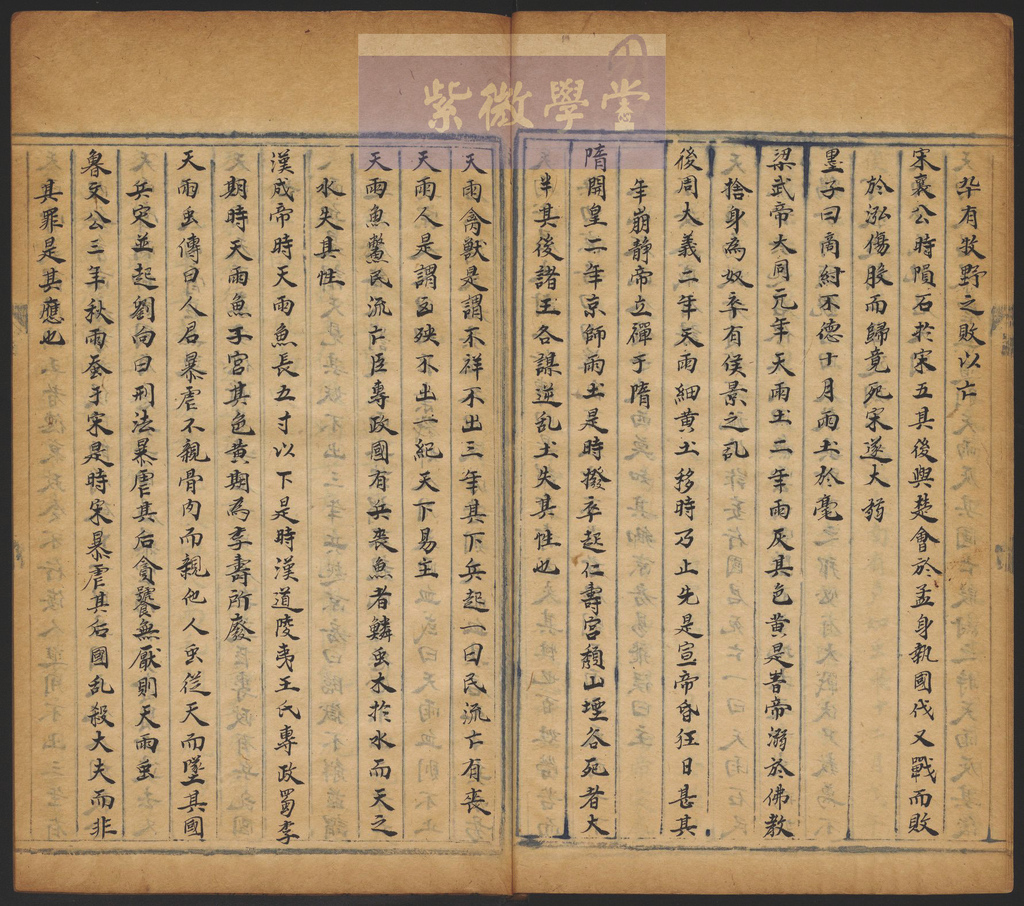 紫微學堂
卒有牧野之敗以亡
宋襄公時隕石於宋五其後與楚會於孟身執國伐又戰而敗
於泓傷股而歸竟死宋遂大弱
墨子曰商紂不德十月雨土於亳
梁武帝大同元年天雨土二年雨灰其色黄是時帝溺於佛教
捨身為奴卒有侯景之乱
後周大義二年天雨細黄土移時乃止先是宣帝昏狂日甚其
年崩静帝立禪于隋
隋開皇二年京師雨土是時撥卒起仁壽宮頹山堙谷死者大
半其後諸王各謀逆乱土失其性也
天雨禽獸是謂不祥不出三年其下兵起一曰民流亡有喪
天雨人是謂 殃不出一紀天下易主
天雨魚鱉民流亡臣專政國有兵喪魚者鱗虫水於水而天之
水失其性
漢成帝時天雨魚長五寸以下是時漢道陵夷王氏專政蜀李
期時天雨魚子宮其色黄期為李壽所廢
天雨虫傳曰人君暴虐不親骨肉而親他人虫從天而墜其國
兵灾並起劉向曰刑法暴虐其后貪饕無厭則天雨虫
魯文公三年秋雨蚤于宋是時宋暴虐其后國乱殺大夫而非
其罪是其應也